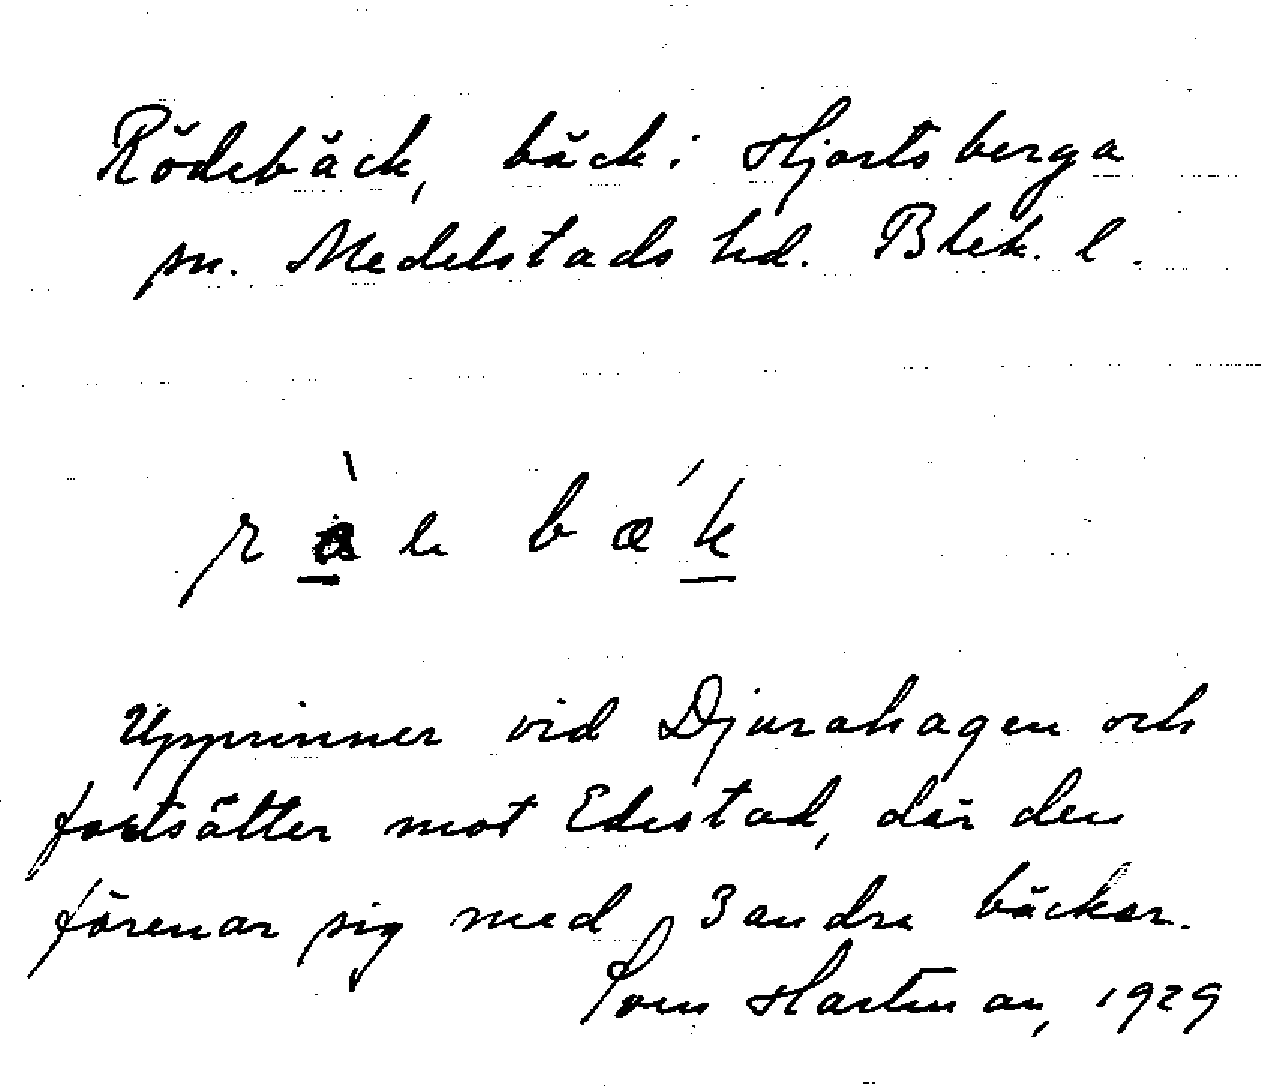 Rödebäck, bäck i Hjortsberga
sn. Medelstads hd. Blek. l.
Upprinner vid Djurahagen och
fortsätter mot Edestad, där den
förenar sig med 3 andra bäckar.
Sven Hartman, 1929